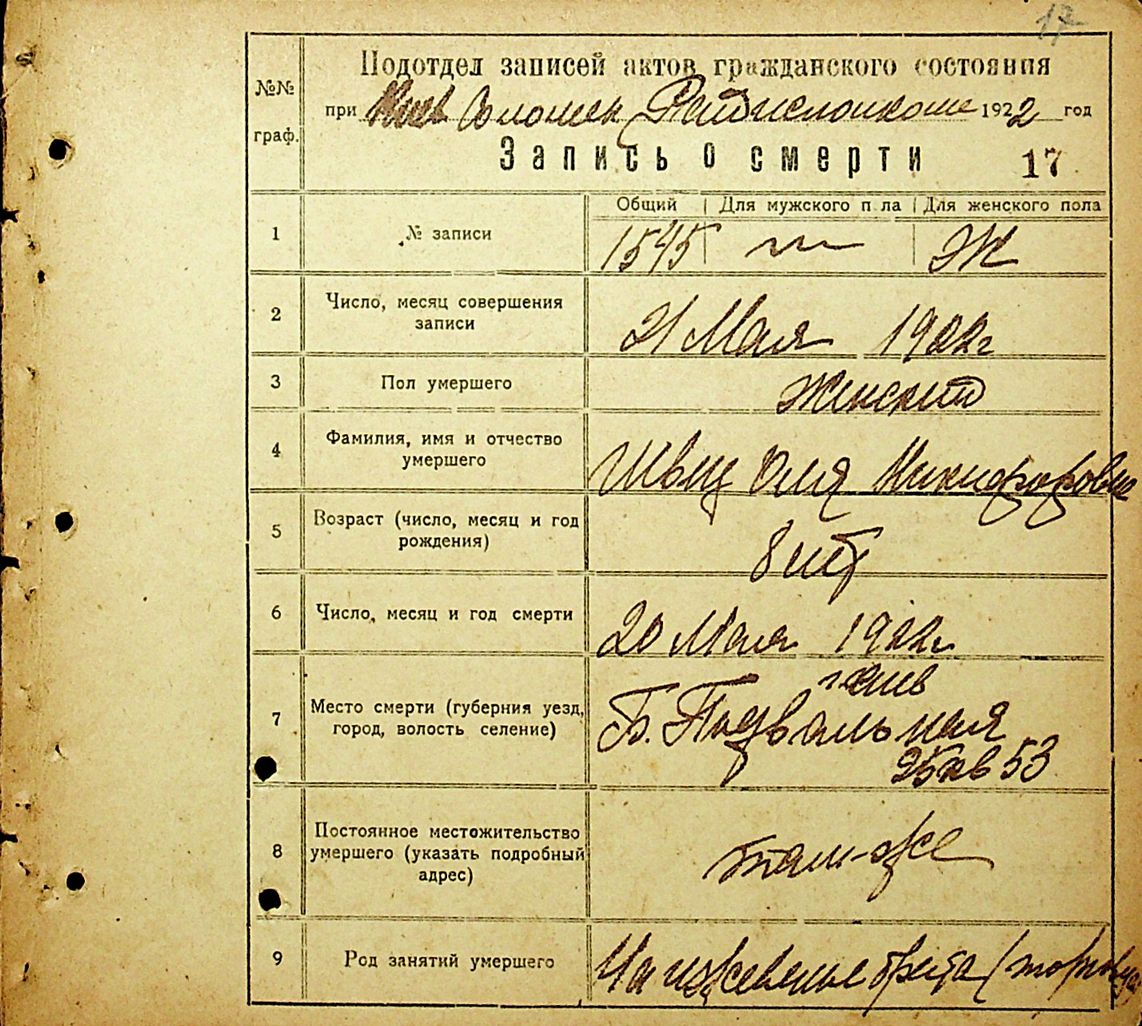 17
Подотдел записей актов гражданского состояния
№№ граф.
при Киев 1922 год
Запись о смерти 17
Общий Для мужского п ла Для женского пола
1 № записи 1545 Ж
2 Число, месяц совершения
записи
21 Мая 1922 г
3 Пол умершего Женский
4 Фамилия, имя и отчество
умершего
Швец Оля Никифоровна
5 Возраст (число, месяц и год
рождения)
8 лет
6 Число, месяц и год смерти 20 Мая 1922 г.
7 Место смерти (губерния уезд,
город, волость селение)
г. Киев
Б. Подвальная
25 кв 53
8 Постоянное местожительство
умершего (указать подробный
адрес)
там-же
9 Род занятий умершего На иждевенье брата